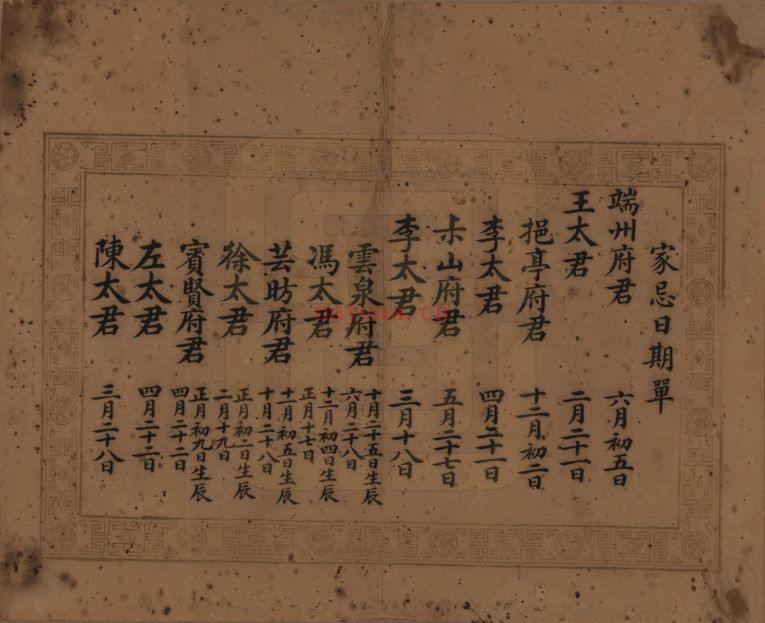 家忌日期單
端州府君 六月初五日
王太君 二月二十一日
挹亭府君 十二月初二日
李太君 四月二十一日
山府君 五月二十七日
李太君 三月十八日
雲泉府君 十月二十五日生辰 六月二十八日
馮太君 十二月初四日生辰 正月十七日
芸昉府君 十一月初五日生辰 十月二十八日
徐太君 正月初二日生辰 二月十九日
賓賢府君 正月初九日生辰 四月二十二日
左太君 四月二十二日
陳太君 三月二十八日